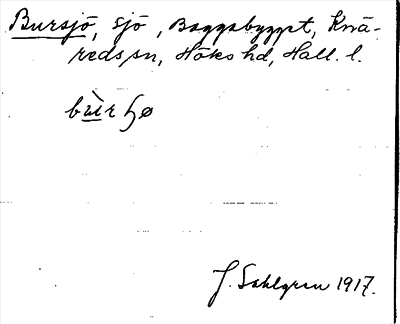 Bursjö, sjö, Baggabygget, Knä-
reds sn, Höks hd, Hall. l.
bùrɧø
J. Sahlgren 1917.